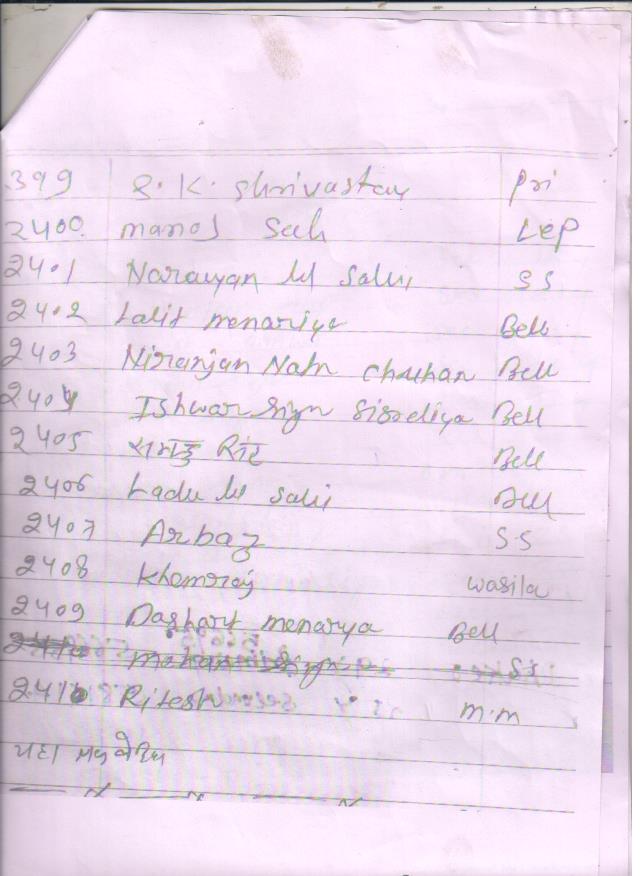 399 S. K. Shrivastav Pri
2400 manoj Seth LEP
2401 Narayan lal Salvi SS
2402 Lalit menariya Bell
2403 Niranjan Nath Chauhan Bell
2404 Ishwar Sign Sisodiya Bell
2405 सिंह Bell
2406 Ladu lal salvi Bell
2407 Arbaz S.S
2408 Khemraj wasila
2409 Dashart menarya Bell
mohan sign
2410 Ritesh m.m